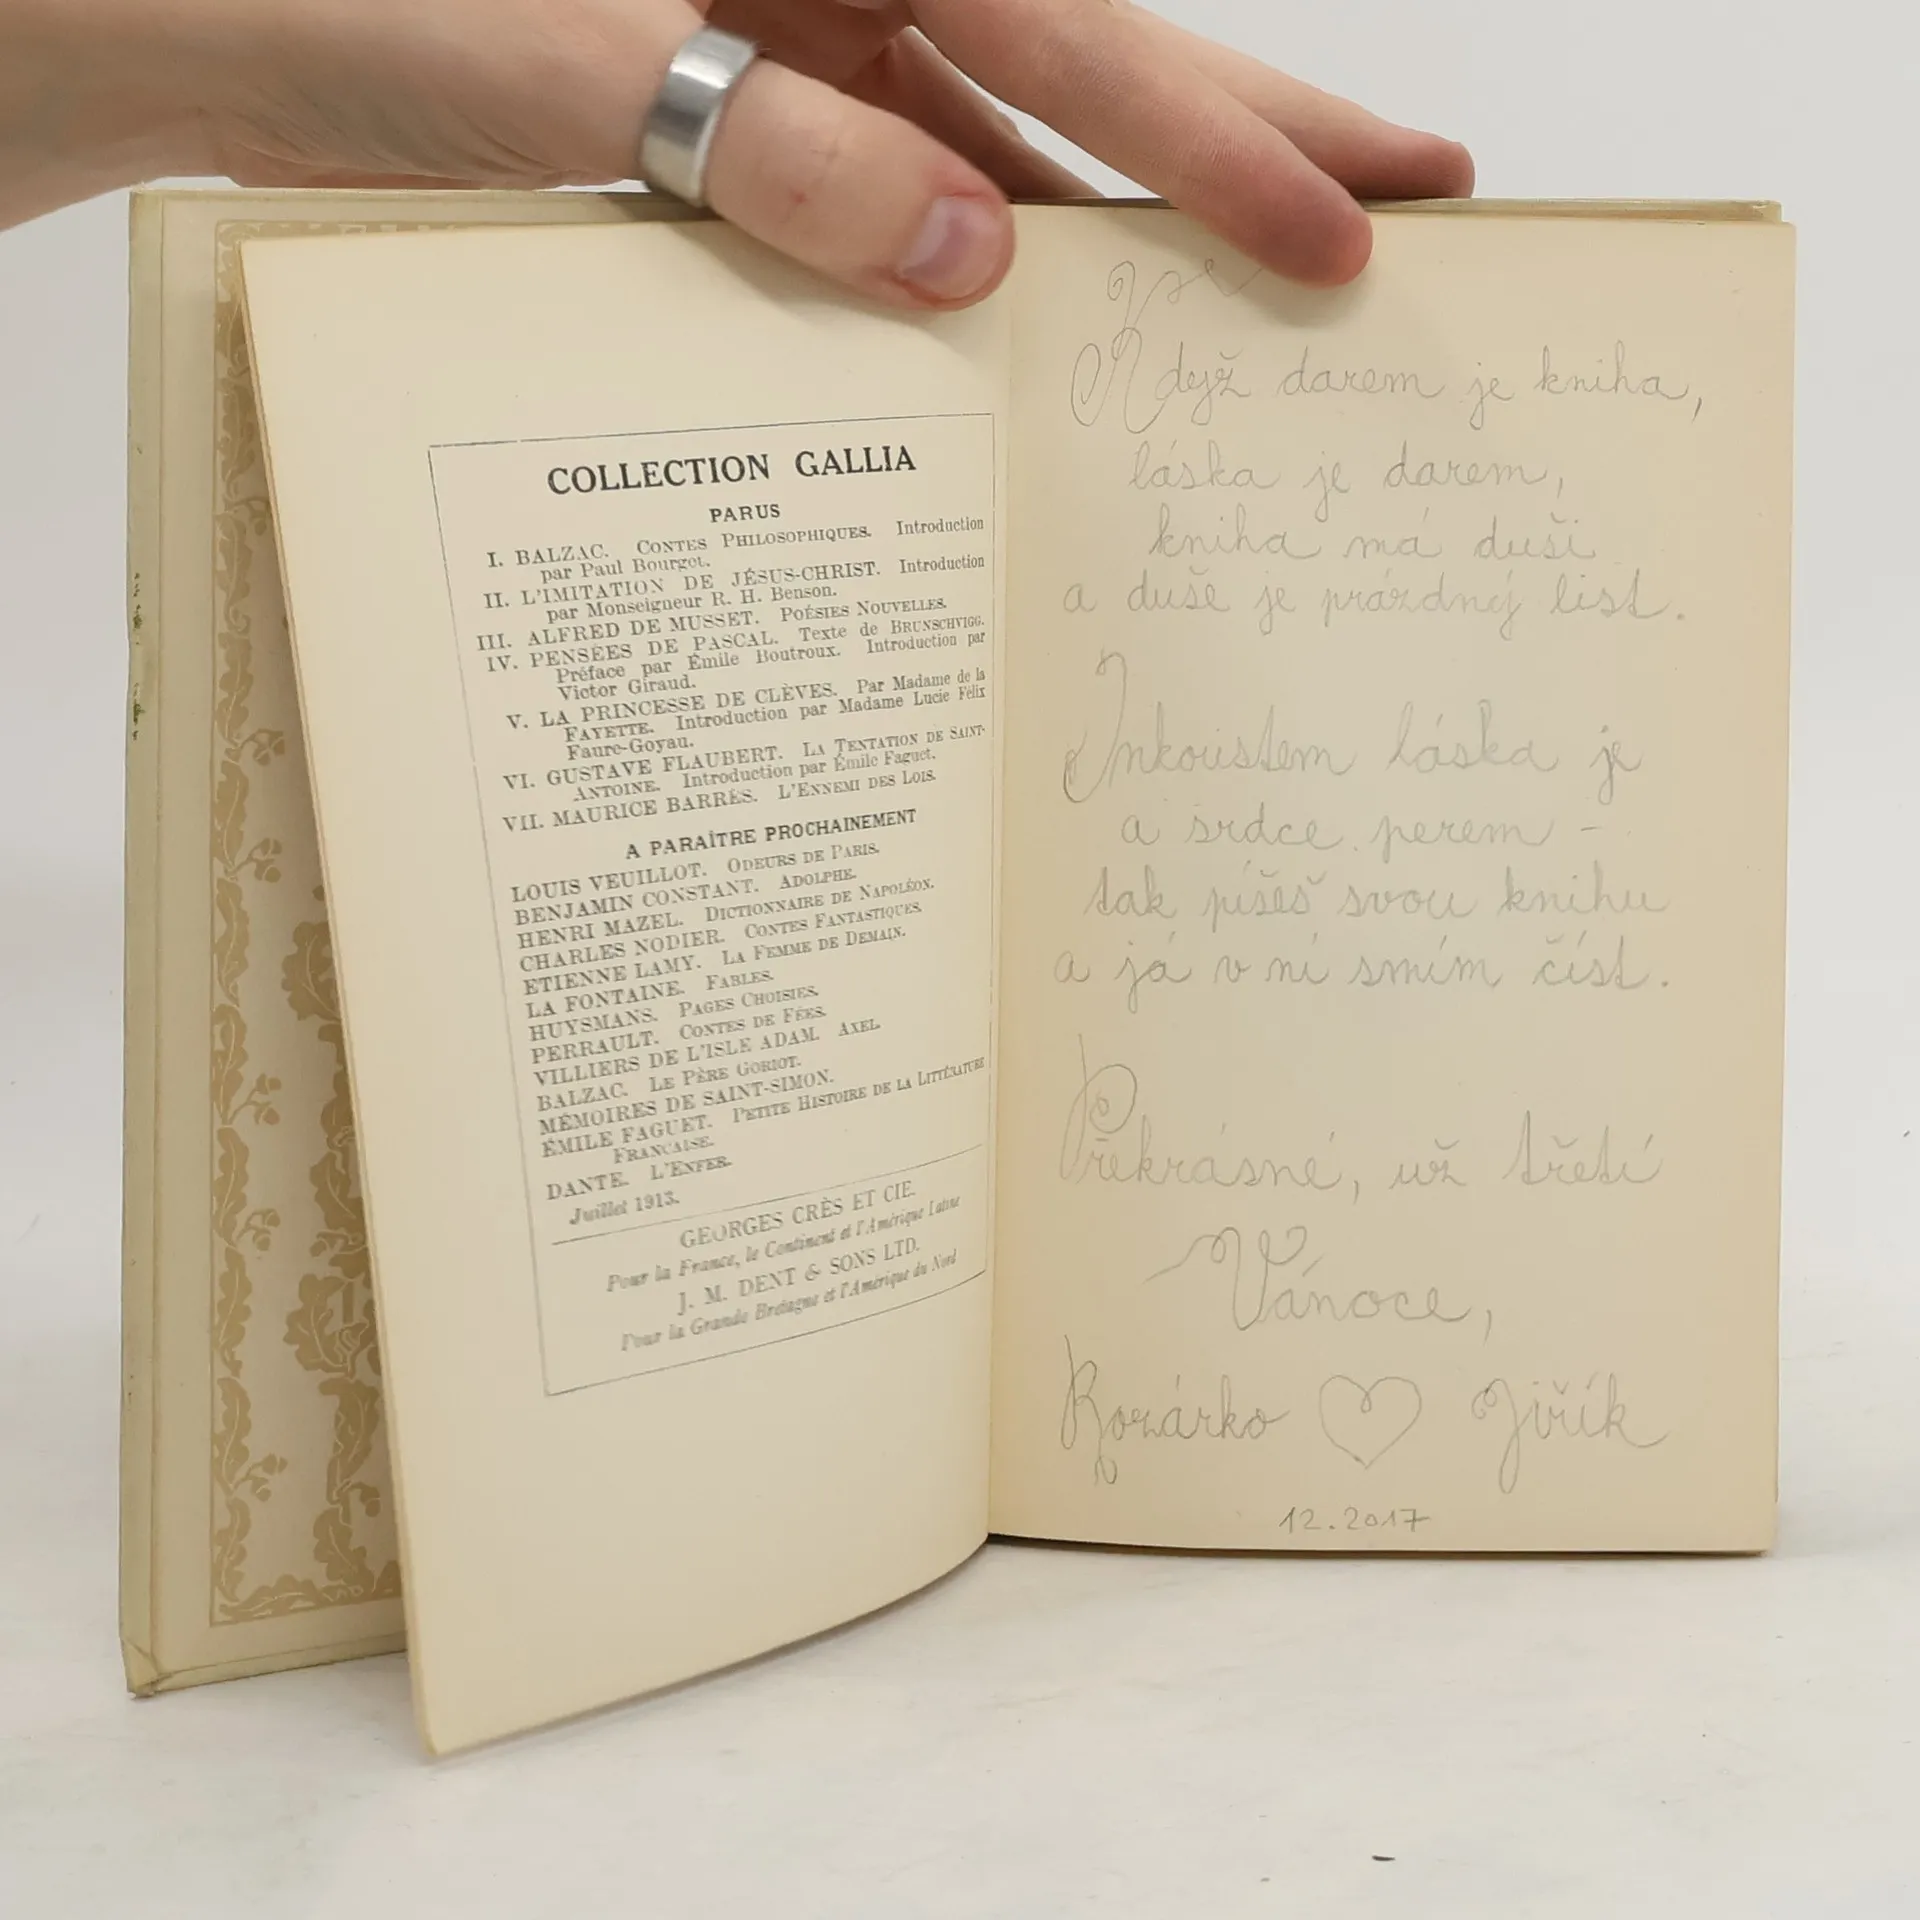 COLLECTION GALLIA
PARUS
I. BALZAC. CONTES PHILOSOPHIQUES. Introduction
par Paul Bourget.
II. L'IMITATION DE JÉSUS-CHRIST. Introduction
par Monseigneur R. H. Benson.
III. ALFRED DE MUSSET. POÉSIES NOUVELLES.
IV. PENSÉES DE PASCAL. Texte de BRUNSCHVIGG.
Préface par Émile Boutroux. Introduction par
Victor Giraud.
V. LA PRINCESSE DE CLÈVES. Par Madame de la
FAYETTE. Introduction par Madame Lucie Félix
Faure-Goyau.
VI. GUSTAVE FLAUBERT. LA TENTATION DE SAINT-
ANTOINE. Introduction par Émile Faguet.
VII. MAURICE BARRÈS. L'ENNEMI DES LOIS.
A PARAÎTRE PROCHAINEMENT
LOUIS VEUILLOT. ODEURS DE PARIS.
BENJAMIN CONSTANT. ADOLPHE.
HENRI MAZEL. DICTIONNAIRE DE NAPOLÉON.
CHARLES NODIER. CONTES FANTASTIQUES.
ETIENNE LAMY. LA FEMME DE DEMAIN.
LA FONTAINE. FABLES.
HUYSMANS. PAGES CHOISIES.
PERRAULT. CONTES DE FÉES.
VILLIERS DE L'ISLE ADAM. AXEL.
BALZAC. LE PÈRE GORIOT.
MÉMOIRES DE SAINT-SIMON.
ÉMILE FAGUET. PETITE HISTOIRE DE LA LITTÉRATURE
FRANÇAISE.
DANTE. L'ENFER.
Juillet 1913.
GEORGES CRÈS ET CIE.
Pour la France, le Continent et l'Amérique Latine
J. M. DENT & SONS LTD.
Pour la Grande Bretagne et l'Amérique du Nord
Když darem je kniha,
láska je darem,
kniha má duši
a duše je prázdný list.
Inkoustem láska je
a srdce perem -
tak píšeš svou knihu
a já v ní smím číst.
Překrásné, už třetí
Vánoce,
Rozárko Jiřík
12.2017